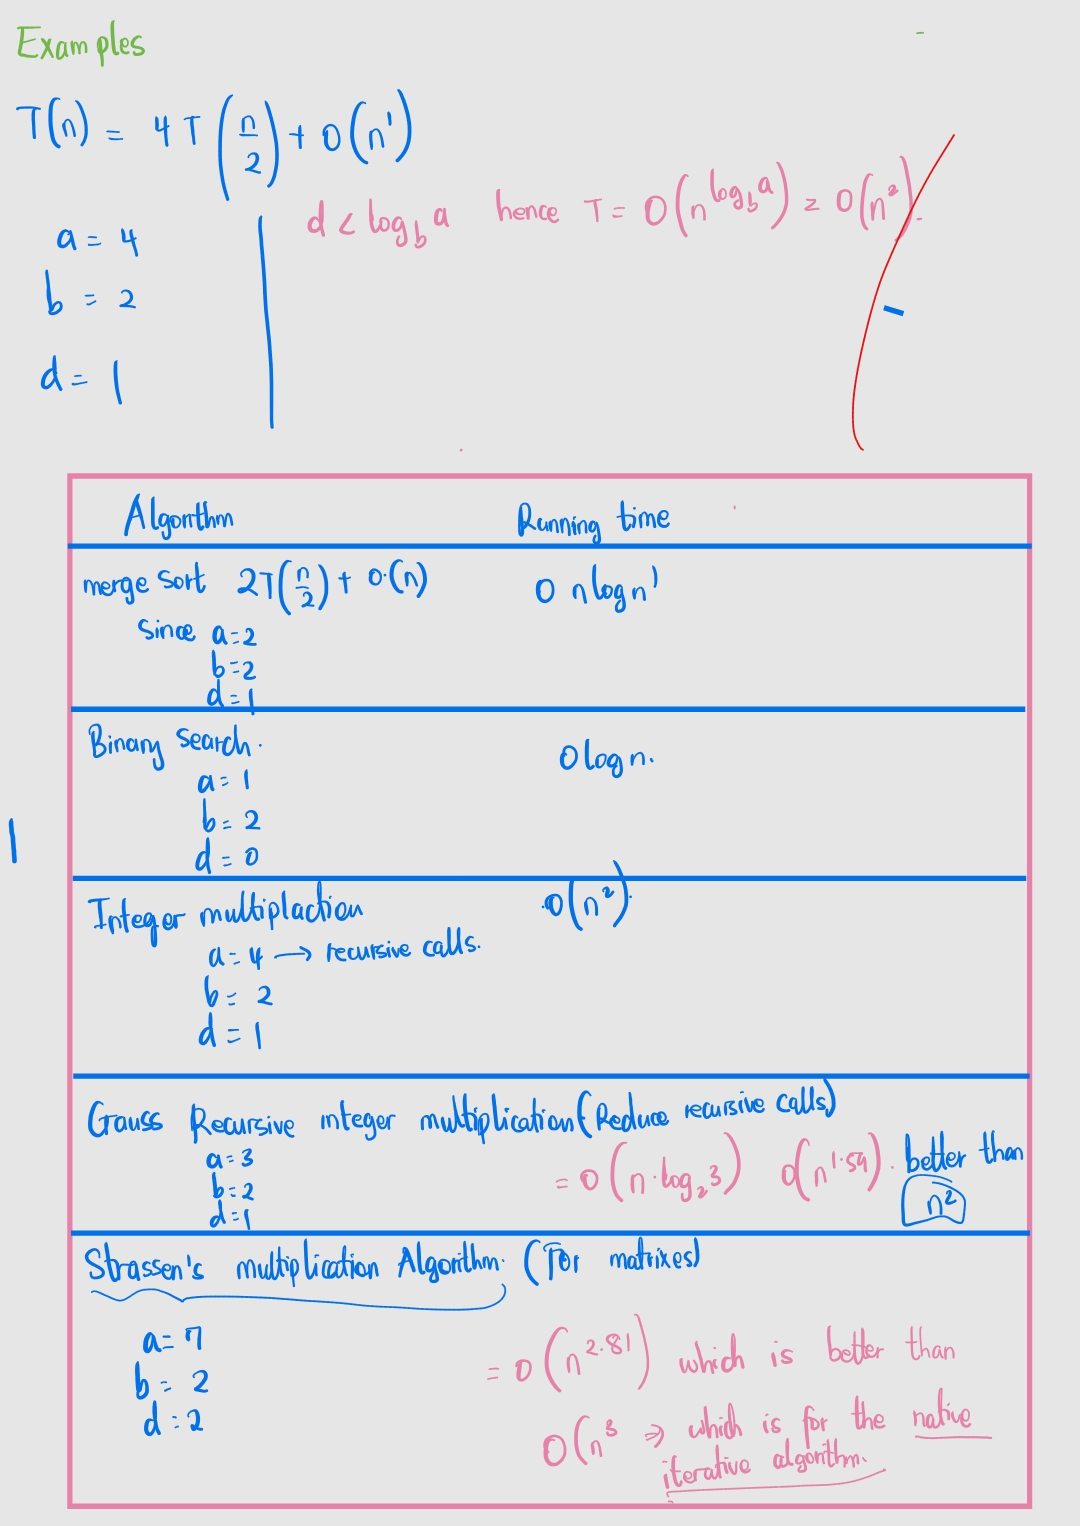 Examples
T(n) = 4T(n/2) + O(n¹)
a = 4
b = 2
d = 1
d < log_b a hence T = O(n^(log_b a)) = O(n²).
Algorithm Running time
merge sort 2T(n/2) + O(n) O n log n
Since a=2
b=2
d=1
Binary search. O log n.
a = 1
b = 2
d = 0
Integer multiplaction O(n²).
a = 4 → recursive calls.
b = 2
d = 1
Gauss Recursive integer multiplication (Reduce recursive calls)
a=3
b=2
d=1
= O(n·log₂3) O(n^1.59). better than
n²
Strassen's multiplication Algorithm. (For matrixes)
a = 7
b = 2
d = 2
= O(n^2.81) which is better than
O(n³ ⇒ which is for the native
iterative algorithm.